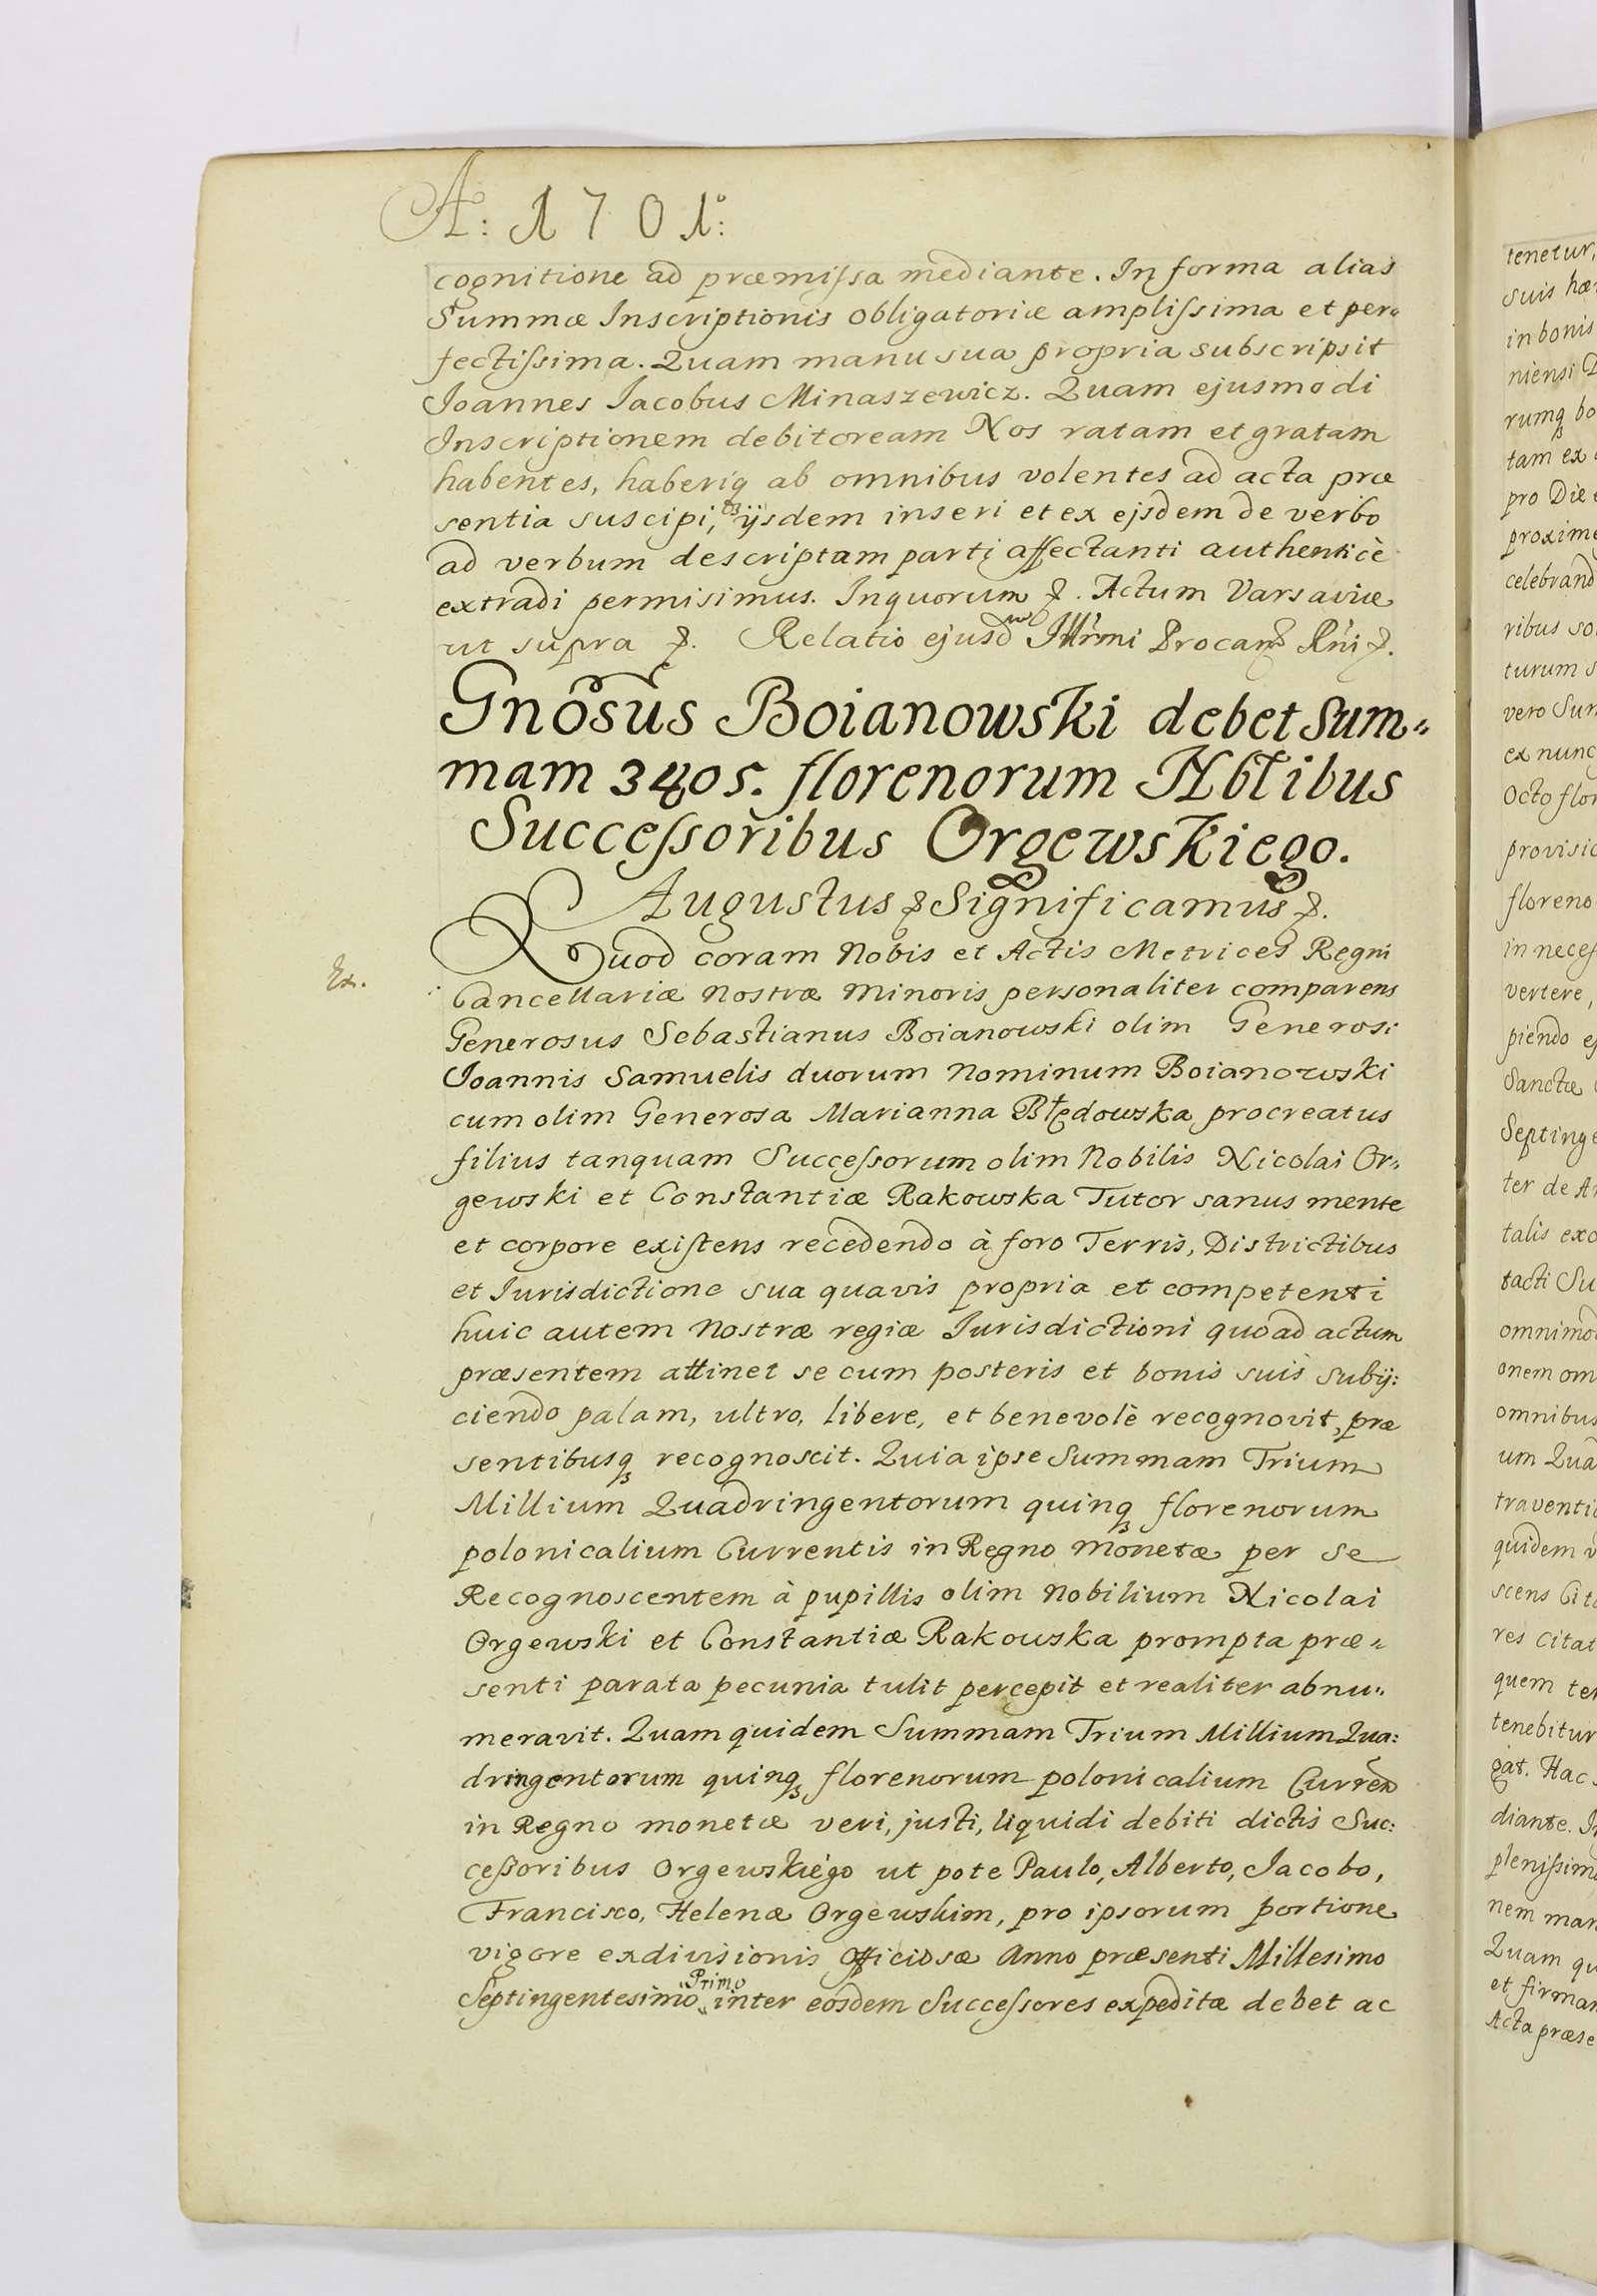 A: 1701º:
cognitione ad præmiſsa mediante. In forma alias
Summæ Inscriptionis obligatoriæ ampliſsima et per„
fectiſsima. Quam manu sua propria subscripsit
Joannes Jacobus Minaszewicz. Quam ejusmodi
Inscriptionem debitoream Nos ratam et gratam
habentes, haberiq ab omnibus volentes ad acta præ
sentia suscipi, ijsdem inseri et ex ejsdem de verbo
ad verbum descriptam parti affectanti authenticè
extradi permisimus. Inquorum &. Actum Varsaviæ
ut supra &. Relatio ejusd Illr̃mi Procanc Rñi &.
Gnõsus Boianowski debet Sum„
mam 3405. florenorum Nbłibus
Succeſsoribus Orgewskiego.
Augustus & Significamus &.
Quod coram Nobis et Actis Metrices Regni
Ex.
Cancellariæ Nostræ Minoris personaliter comparens
Generosus Sebastianus Boianowski olim Generosi
Joannis Samuelis duorum Nominum Boianowski
cum olim Generosa Marianna Błędowska procreatus
filius tanquam Succeſsorum olim Nobilis Nicolai Or„
gewski et Constantiæ Rakowska Tutor sanus mente
et corpore exiſtens recedendo à foro Terris, Districtibus
et Jurisdictione sua quavis propria et competenti
huic autem Nostræ regiæ Jurisdictioni quoad actum
præsentem attinet se cum posteris et bonis suis subij:
ciendo palam, ultro, libere, et benevolè recognovit, præ
sentibusq recognoscit. Quia ipse Summam Trium
Millium Quadringentorum quinq florenorum
polonicalium Currentis in Regno monetæ per se
Recognoscentem à pupillis olim Nobilium Nicolai
Orgewski et Constantiæ Rakowska prompta præ„
senti parata pecunia tulit percepit et realiter abnu„
meravit. Quam quidem Summam Trium Millium Qua:
dringentorum quinq florenorum polonicalium Curren
in Regno monetæ veri, justi, liquidi debiti dictis Suc:
ceßoribus Orgewskiégo ut pote Paulo, Alberto, Jacobo,
Francisco, Helenæ Orgewskim, pro ipsorum portione
vigore exdivisionis officiosæ Anno præsenti Millesimo
Septingentesimo Primo inter eosdem Succeſsores expeditæ debet ac
tenetur,
suis hær
in bonis
niensi D
rumq bo
tam ex
pro Die
proxime
celebrand
ribus so
turum s
vero Sum
ex nunc
Octo flor
provisio
floreno
in neceſ
vertere,
piendo ej
Sanctæ
Septinge
ter de A
talis exo
tacti Su
omnimod
onem om
omnibus
um Qua
traventi
quidem v
scens Cit
res citat
quem te
tenebitur
gat. Hac
diante. I
pleniſsim
nem man
Quam qu
et firmar
Acta præse